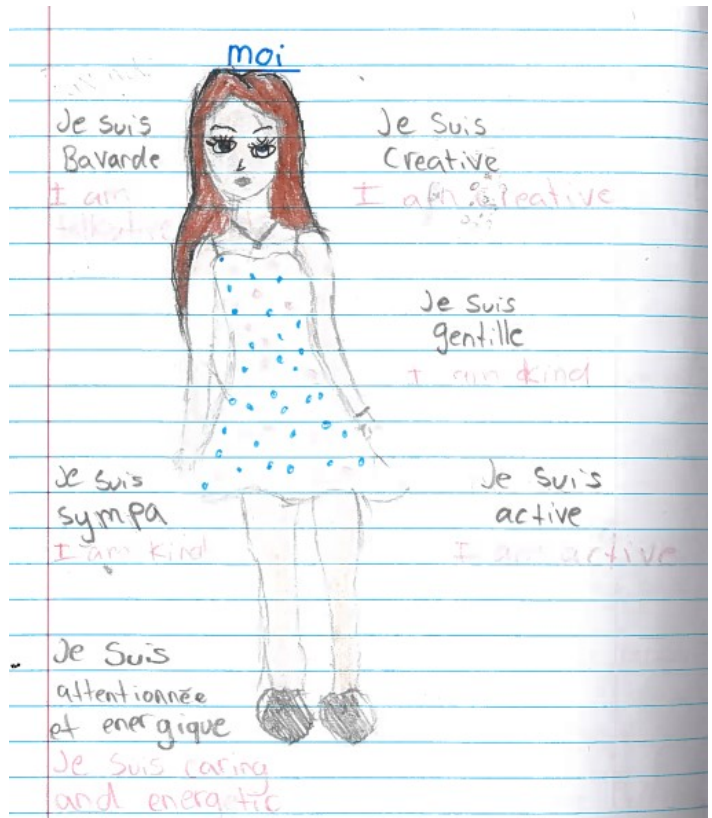 moi
Je suis
Bavarde
I am
talkative
Je Suis
Creative
I am Creative
Je Suis
gentille
I am kind
Je suis
sympa
I am kind
Je Suis
active
I am active
Je Suis
attentionnée
et energique
Je Suis caring
and energetic